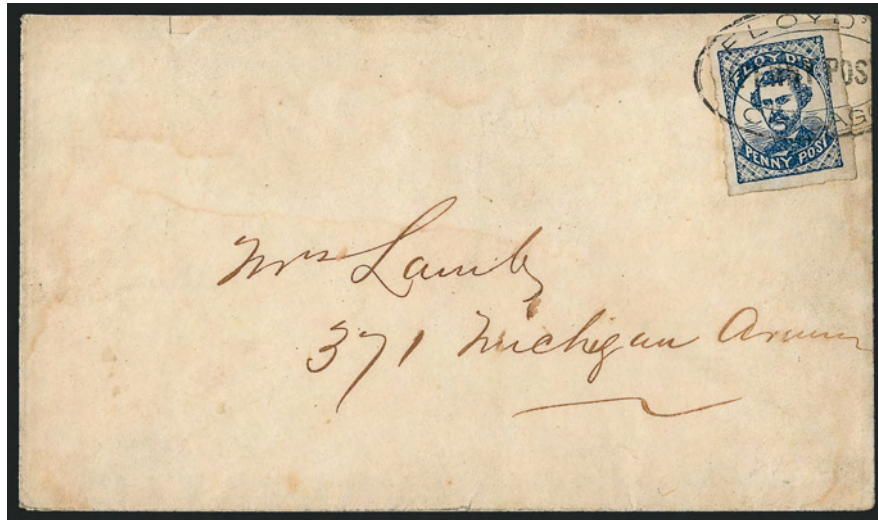 FLOYD'S
PENNY POST
CHICAGO
FLOYD'S
PENNY POST
Mrs Lamb
371 Michigan Avenue